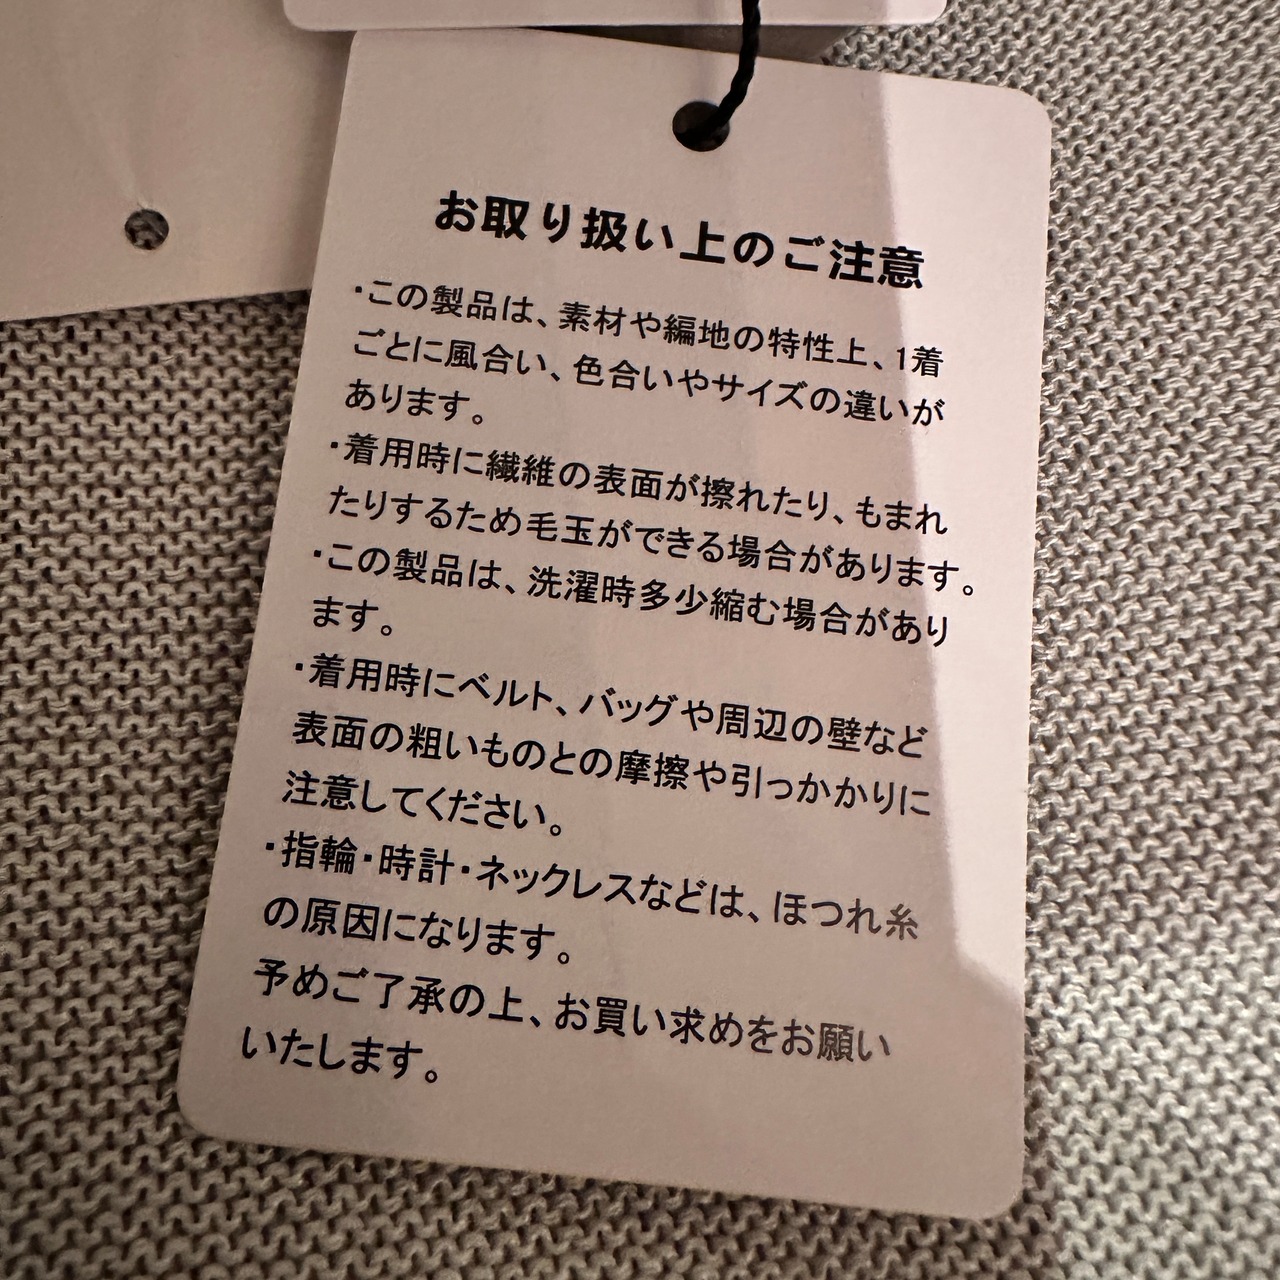 お取り扱い上のご注意
・この製品は、素材や編地の特性上、1着
ごとに風合い、色合いやサイズの違いが
あります。
・着用時に繊維の表面が擦れたり、もまれ
たりするため毛玉ができる場合があります。
・この製品は、洗濯時多少縮む場合があり
ます。
・着用時にベルト、バッグや周辺の壁など
表面の粗いものとの摩擦や引っかかりに
注意してください。
・指輪・時計・ネックレスなどは、ほつれ糸
の原因になります。
予めご了承の上、お買い求めをお願い
いたします。